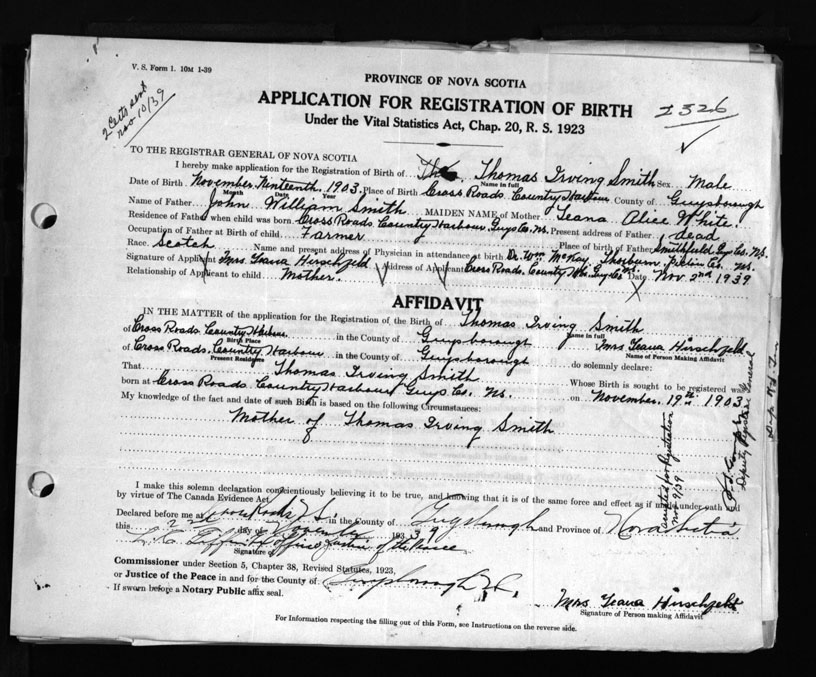 V. S. Form 1. 10M 1-39
2 Certs sent
Nov 10/39
PROVINCE OF NOVA SCOTIA
APPLICATION FOR REGISTRATION OF BIRTH
1326
Under the Vital Statistics Act, Chap. 20, R. S. 1923
TO THE REGISTRAR GENERAL OF NOVA SCOTIA
I hereby make application for the Registration of Birth of Thomas Irving Smith Sex Male
Name in full
Date of Birth November Nineteenth 1903 Place of Birth Cross Roads Country Harbour County of Guysborough
Month Date Year
Name of Father John William Smith MAIDEN NAME of Mother Teana Alice White
Residence of Father when child was born Cross Roads Country Harbour, Guys Co. Ns. Present address of Father dead
Occupation of Father at Birth of child Farmer Place of birth of Father Smithfield Guy Co. Ns.
Race Scotch Name and present address of Physician in attendance at birth Dr. Wm McKay, Thorburn, Pictou Co. Ns.
Signature of Applicant Mrs Teana Hirschfeld Address of Applicant Cross Roads, Country Hbr. Guy Co. Ns. Date Nov 2nd 1939
Relationship of Applicant to child Mother.
AFFIDAVIT
IN THE MATTER of the application for the Registration of the Birth of Thomas Irving Smith
Name in full
of Cross Roads Country Harbour in the County of Guysborough Mrs Teana Hirschfeld
Birth Place Name of Person Making Affidavit
of Cross Roads, Country Harbour in the County of Guysborough do solemnly declare:
Present Residence
That Thomas Irving Smith Whose Birth is sought to be registered was
born at Cross Roads Country Harbour Guys Co. Ns. on November 19th 1903
My knowledge of the fact and date of such Birth is based on the following Circumstances:
Mother of Thomas Irving Smith
I make this solemn declaration conscientiously believing it to be true, and knowing that it is of the same force and effect as if made under oath and
by virtue of The Canada Evidence Act.
Declared before me at Cross Roads in the County of Guysborough and Province of Nova Scotia
this 2nd day of 1939
Justice of the Peace
Signature of
Commissioner under Section 5, Chapter 38, Revised Statutes, 1923,
or Justice of the Peace in and for the County of Guysborough
If sworn before a Notary Public affix seal.
Mrs Teana Hirschfeld
Signature of Person making Affidavit
For Information respecting the filling out of this Form, see Instructions on the reverse side.
for Registration
Nov 9/39
Deputy Registrar General